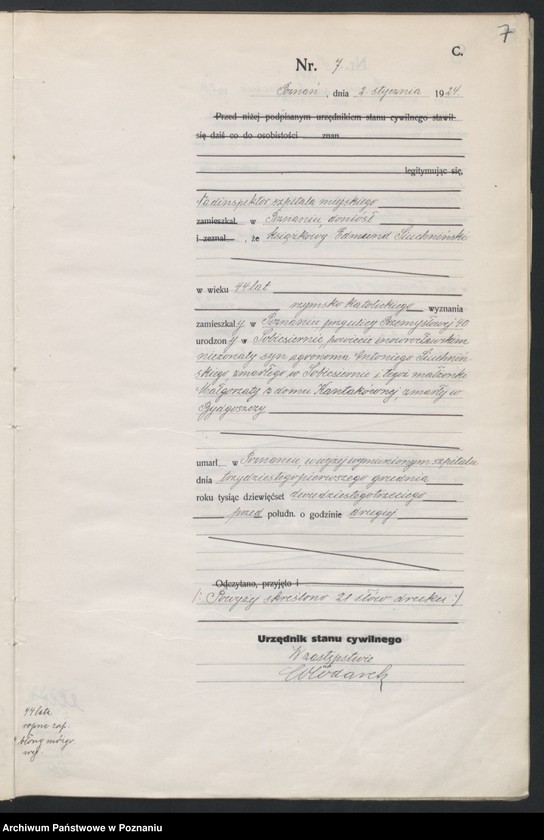 7
C.
Nr. 7
Poznań, dnia 2 stycznia 1924
Przed niżej podpisanym urzędnikiem stanu cywilnego stawił
się dziś co do osobistości znan
legitymując się,
Nadinspektor szpitala miejskiego
zamieszkał w Poznaniu doniósł
i zeznał, że książkowy Edmund
w wieku 44 lat
rzymsko katolickiego wyznania
zamieszkały w Poznaniu przy ulicy Przemysłowej 40
urodzony w powiecie inowrocławskim
nieżonaty syn agronoma Antoniego
zmarłego w i tegoż małżonki
Małgorzaty z domu zmarłej w
Bydgoszczy
umarł w Poznaniu, w wyżej wymienionym szpitalu
dnia trzydziestego pierwszego grudnia
roku tysiąc dziewięćset dwudziestego trzeciego
przed połudn. o godzinie drugiej
Odczytano, przyjęto i
/: Powyżej skreślono 21 słów druku :/
Urzędnik stanu cywilnego
W zastępstwie
Włodarek
44 lata
ropne zap.
błony mózgo
wej
Archiwum Państwowe w Poznaniu